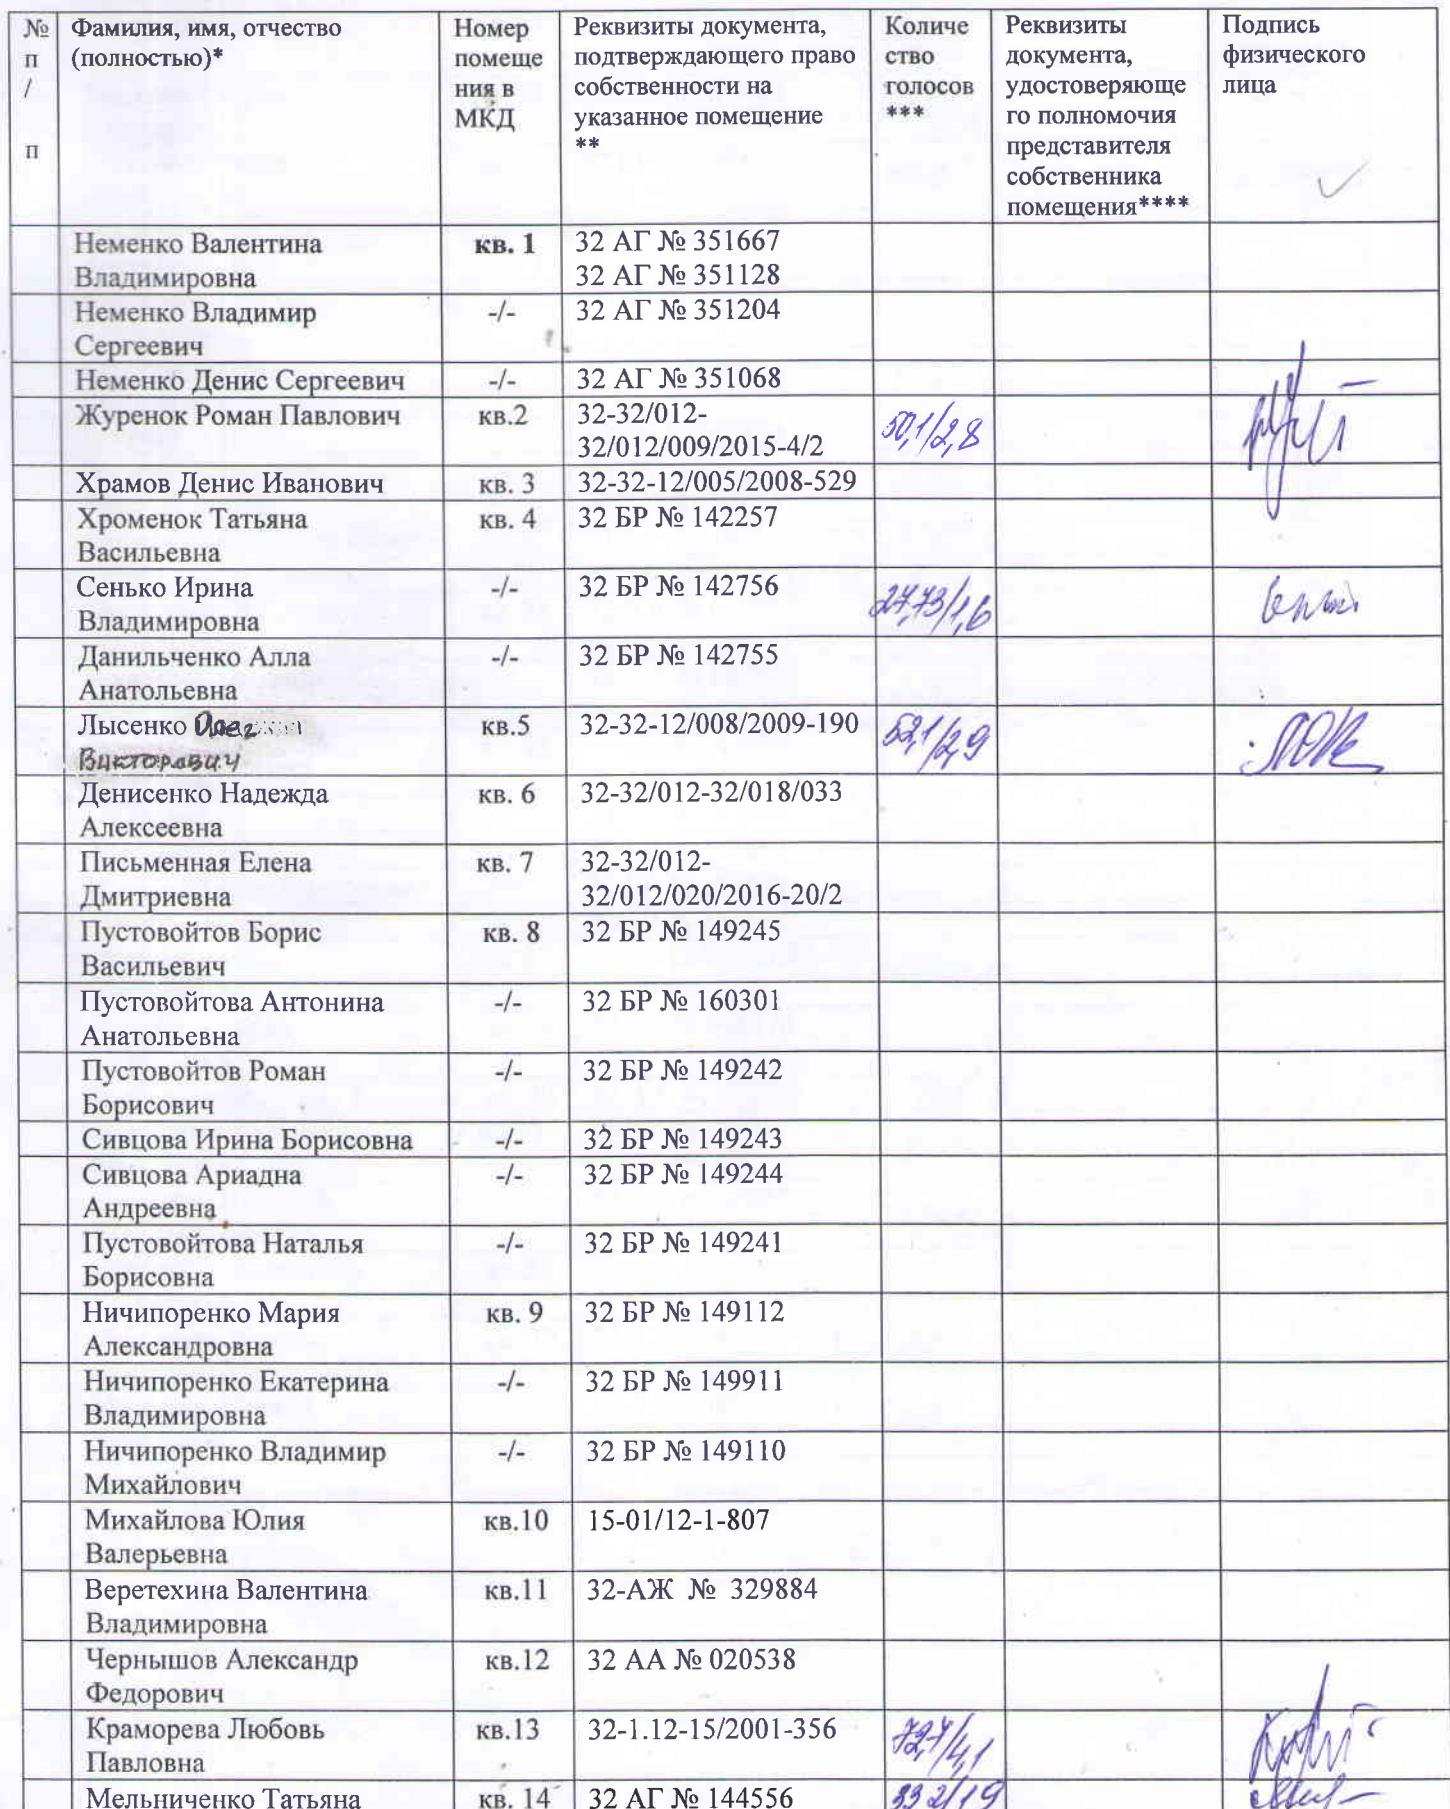 № п / п
Фамилия, имя, отчество
(полностью)*
Номер
помеще
ния в
МКД
Реквизиты документа,
подтверждающего право
собственности на
указанное помещение
**
Количе
ство
голосов
***
Реквизиты
документа,
удостоверяюще
го полномочия
представителя
собственника
помещения****
Подпись
физического
лица
Неменко Валентина
Владимировна
кв. 1
32 АГ № 351667
32 АГ № 351128
Неменко Владимир
Сергеевич
-/-
32 АГ № 351204
Неменко Денис Сергеевич
-/-
32 АГ № 351068
Журенок Роман Павлович
кв.2
32-32/012-
32/012/009/2015-4/2
50,1/2,8
Храмов Денис Иванович
кв. 3
32-32-12/005/2008-529
Хроменок Татьяна
Васильевна
кв. 4
32 БР № 142257
Сенько Ирина
Владимировна
-/-
32 БР № 142756
27,73/1,6
Данильченко Алла
Анатольевна
-/-
32 БР № 142755
Лысенко Олег
Викторович
кв.5
32-32-12/008/2009-190
52,1/2,9
Денисенко Надежда
Алексеевна
кв. 6
32-32/012-32/018/033
Письменная Елена
Дмитриевна
кв. 7
32-32/012-
32/012/020/2016-20/2
Пустовойтов Борис
Васильевич
кв. 8
32 БР № 149245
Пустовойтова Антонина
Анатольевна
-/-
32 БР № 160301
Пустовойтов Роман
Борисович
-/-
32 БР № 149242
Сивцова Ирина Борисовна
-/-
32 БР № 149243
Сивцова Ариадна
Андреевна
-/-
32 БР № 149244
Пустовойтова Наталья
Борисовна
-/-
32 БР № 149241
Ничипоренко Мария
Александровна
кв. 9
32 БР № 149112
Ничипоренко Екатерина
Владимировна
-/-
32 БР № 149911
Ничипоренко Владимир
Михайлович
-/-
32 БР № 149110
Михайлова Юлия
Валерьевна
кв.10
15-01/12-1-807
Веретехина Валентина
Владимировна
кв.11
32-АЖ № 329884
Чернышов Александр
Федорович
кв.12
32 АА № 020538
Краморева Любовь
Павловна
кв.13
32-1.12-15/2001-356
72,7/4,1
Мельниченко Татьяна
кв. 14
32 АГ № 144556
33,2/1,9